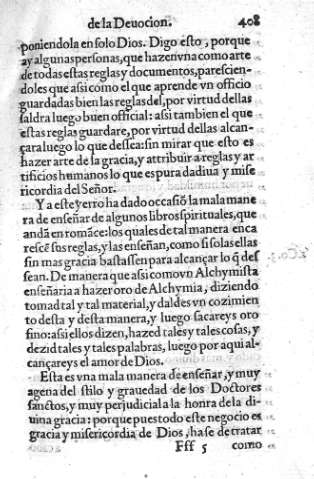 de la Deuocion. 408
poniendola en solo Dios. Digo esto, porque
ay algunas personas, que hazen vna como arte
de todas estas reglas y documentos, parescien-
doles que asi como el que aprende vn officio
guardadas bien las reglas del, por virtud dellas
saldra luego buen official: assi tambien el que
estas reglas guardare, por virtud dellas alcan-
çara luego lo que dessea: sin mirar que esto es
hazer arte de la gracia, y attribuir a reglas y ar
tificios humanos lo que es pura dadiua y mise
ricordia del Señor.
Y a este yerro ha dado occasiõ la mala mane
ra de enseñar de algunos libros spirituales, que
andã en romãce: los quales de tal manera enca
rescẽ sus reglas, y las enseñan, como si solas ellas
sin mas gracia bastassen para alcançar lo q̃ des
sean. De manera que asi como vn Alchymista
enseñaria a hazer oro de Alchymia, diziendo
tomad tal y tal material, y daldes vn cozimien
to desta y desta manera, y luego sacareys oro
fino: asi ellos dizen, hazed tales y tales cosas, y
dezid tales y tales palabras, luego por aqui al-
cançareys el amor de Dios.
Esta es vna mala manera de enseñar, y muy
agena del stilo y grauedad de los Doctores
sanctos, y muy perjudicial a la honra de la di-
uina gracia: porque pues todo este negocio es
gracia y misericordia de Dios, hase de tratar
Fff 5 como